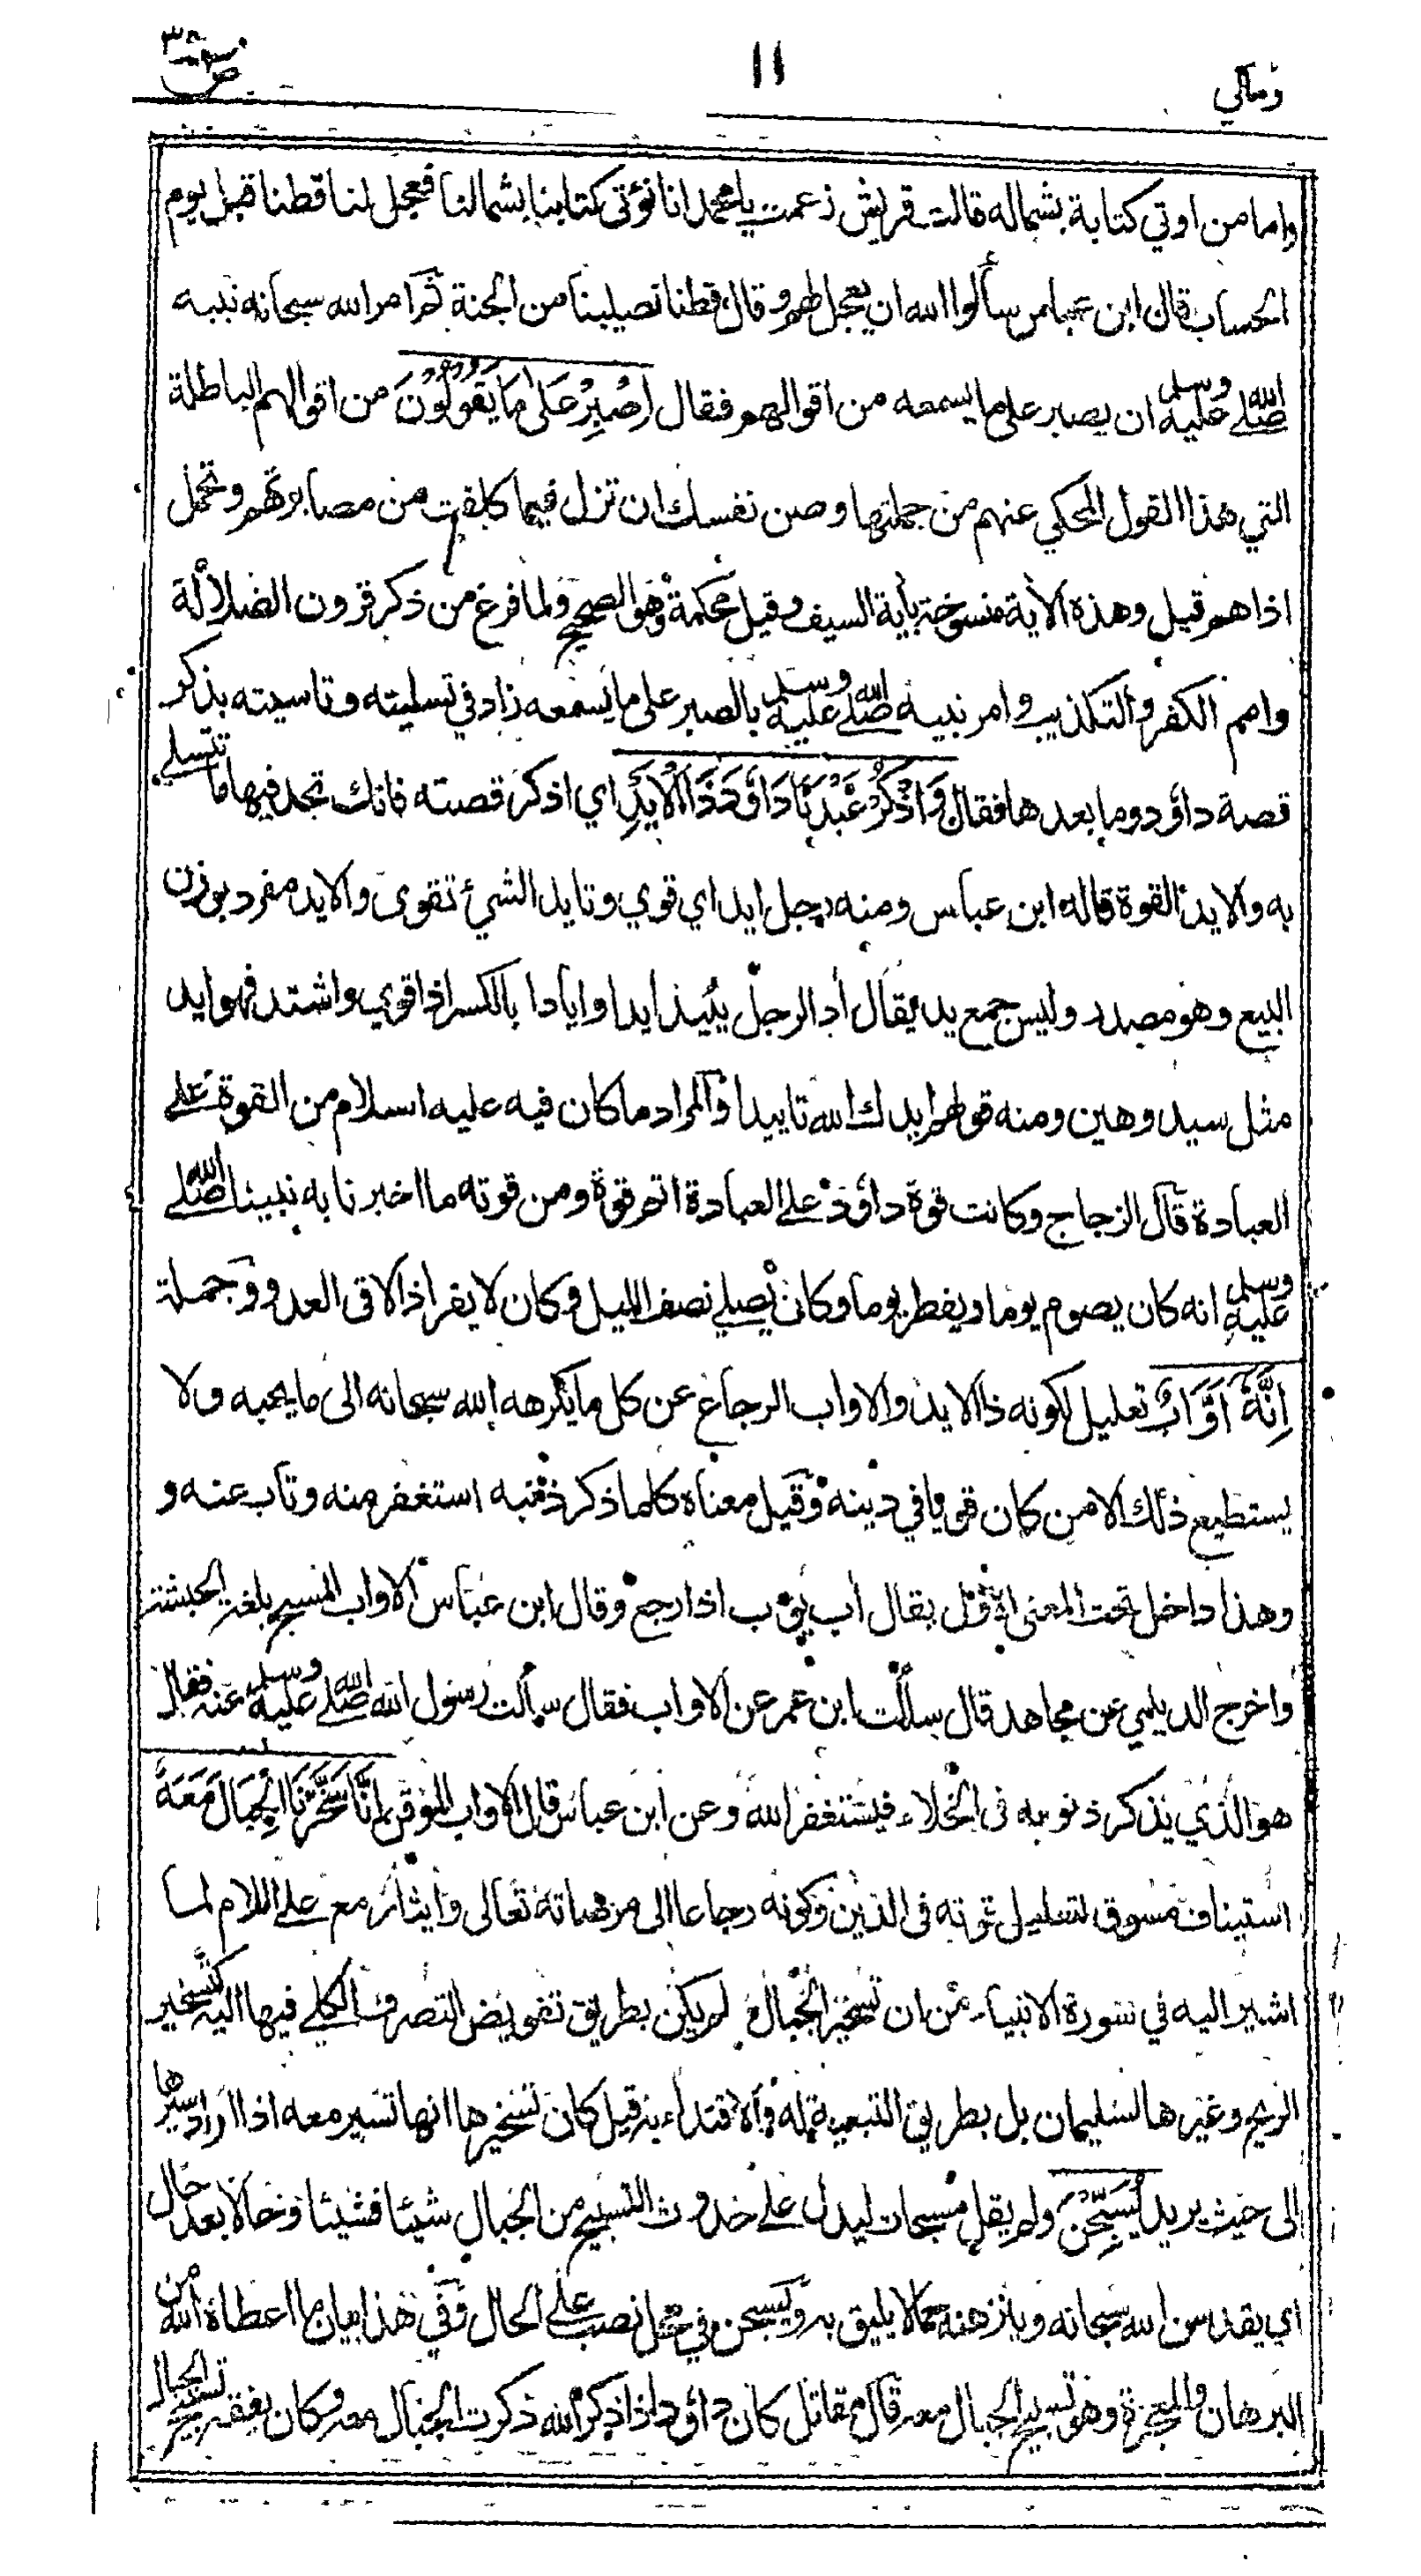 ومالي
١١
ص ٣٨
واما من اوتي كتابة بشماله قالت قريش زعمت يا محمد انا نؤتى كتابنا بشمالنا فعجل لنا قطنا قبل يوم
الحساب قال ابن عباس سألوا الله ان يعجل لهم وقال قطنا نصيبنا من الجنة ثم امر الله سبحانه نبيه
صلى الله عليه وسلم ان يصبر على ما يسمعه من اقوالهم فقال اِصْبِرْ عَلىٰ مَا يَقُولُونَ من اقوالهم الباطلة
التي هذا القول المحكي عنهم من جملتها وصن نفسك ان تزل فيما كلفت من مصابرتهم وتحمل
اذاهم قيل وهذه الأية منسوخة بأية السيف وقيل محكمة وهو الصحيح ولما فرغ من ذكر قرون الضلالة
وامم الكفر والتكذيب وامر نبيه صلى الله عليه وسلم بالصبر على ما يسمعه زاد في تسليته وتاسيته بذكر
قصة داؤد وما بعدها فقال وَاذْكُرْ عَبْدَنَا دَاوٗدَ ذَا الْاَيْدِ اي اذكر قصته فانك تجد فيها ما تتسلى
به والايد القوة قاله ابن عباس ومنه رجل ايد اي قوي وتايد الشئ تقوى والايد مفرد بوزن
البيع وهو مصدر وليس جمع يد يقال أد الرجل يئيد ايدا وايادا بالكسر اذا قوي واشتد فهو ايد
مثل سيد وهين ومنه قولهم ايدك الله تاييدا والمراد ما كان فيه عليه اسلام من القوة على
العبادة قال الزجاج وكانت قوة داؤد على العبادة اتم قوة ومن قوته ما اخبرنا به نبينا صلى الله
عليه وسلم انه كان يصوم يوما ويفطر يوما وكان يصلي نصف الليل وكان لا يفر اذا لاقى العدو وجملة
اِنَّهٗ اَوَّابٌ تعليل لكونه ذا الايد والاواب الرجاع عن كل ما يكرهه الله سبحانه الى ما يحبه ولا
يستطيع ذلك الا من كان قويا في دينه وقيل معناه كلما ذكر ذنبه استغفر منه وتاب عنه و
وهذا داخل تحت المعنى الاول يقال أب يؤب اذا رجع وقال ابن عباس الاواب المسبح بلغة الحبشة
واخرج الديلمي عن مجاهد قال سألت ابن عمر عن الاواب فقال سألت رسول الله صلى الله عليه وسلم عنه فقال
هو الذي يذكر ذنوبه في الخلاء فيستغفر الله وعن ابن عباس قال الاواب الموقن اِنَّا سَخَّرْنَا الْجِبَالَ مَعَهٗ
استيناف مسوق لتعليل قوته في الدين وكونه رجاعا الى مرضاته تعالى وايثار مع على اللام لما
اشير اليه في سورة الانبياء من ان تسخير الجبال له لم يكن بطريق تفويض التصرف الكلي فيها اليه كتسخير
الريح وغيرها لسليمان بل بطريق التبعية له والاقتداء به قيل كان تسخيرها انها تسير معه اذا اراد سيرها
الى حيث يريد يُسَبِّحْنَ ولم يقل مسبحات ليدل على حدوث التسبيح من الجبال شيئا فشيئا وحالا بعد حال
اي يقدسن الله سبحانه وينزهنه عما لا يليق به ويسبحن في محل نصب على الحال وفي هذا بيان ما اعطاه الله من
البرهان والمعجزة وهو تسبيح الجبال معه قال مقاتل كان داؤد اذا ذكر الله ذكرت الجبال معه وكان يفقه تسبيح الجبال